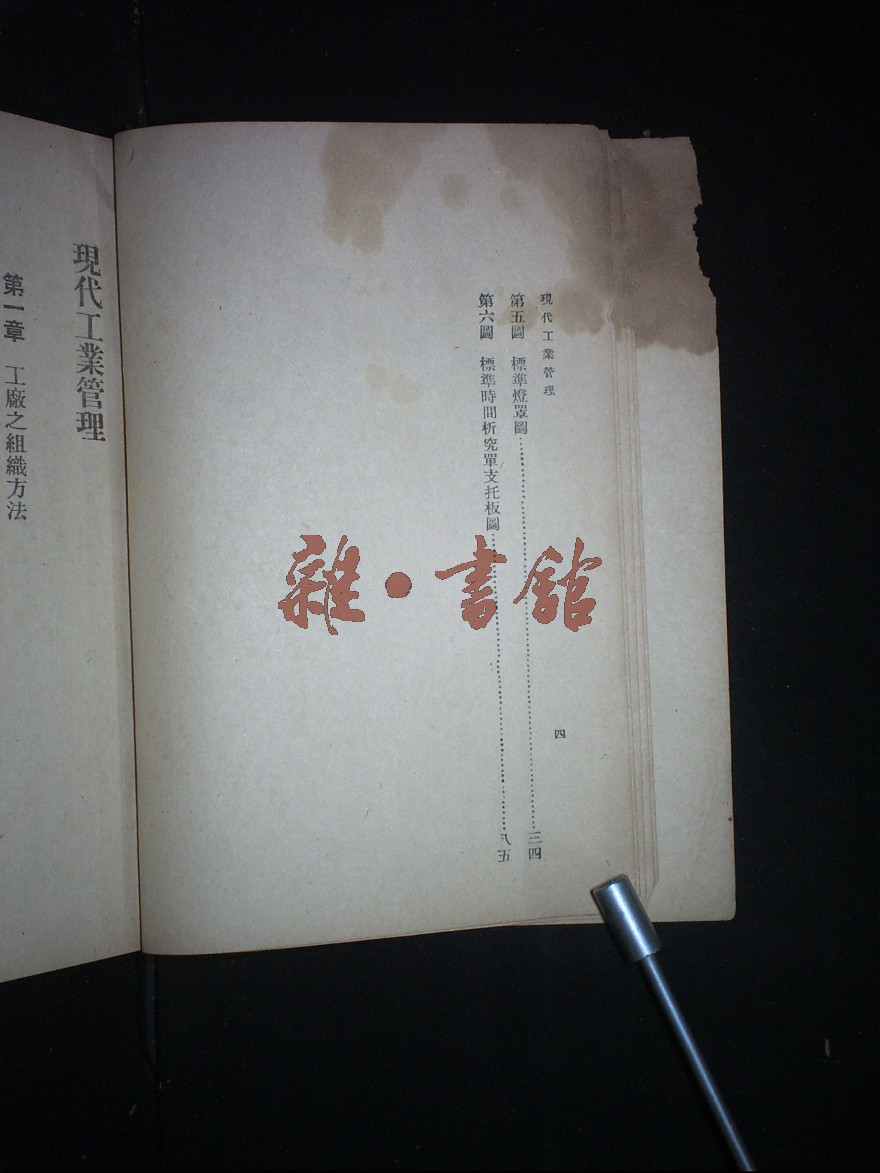 現代工業管理
四
第五圖 標準燈罩圖……三四
第六圖 標準時間析究單支托板圖……八五
現代工業管理
第一章 工廠之組織方法
雜・書館